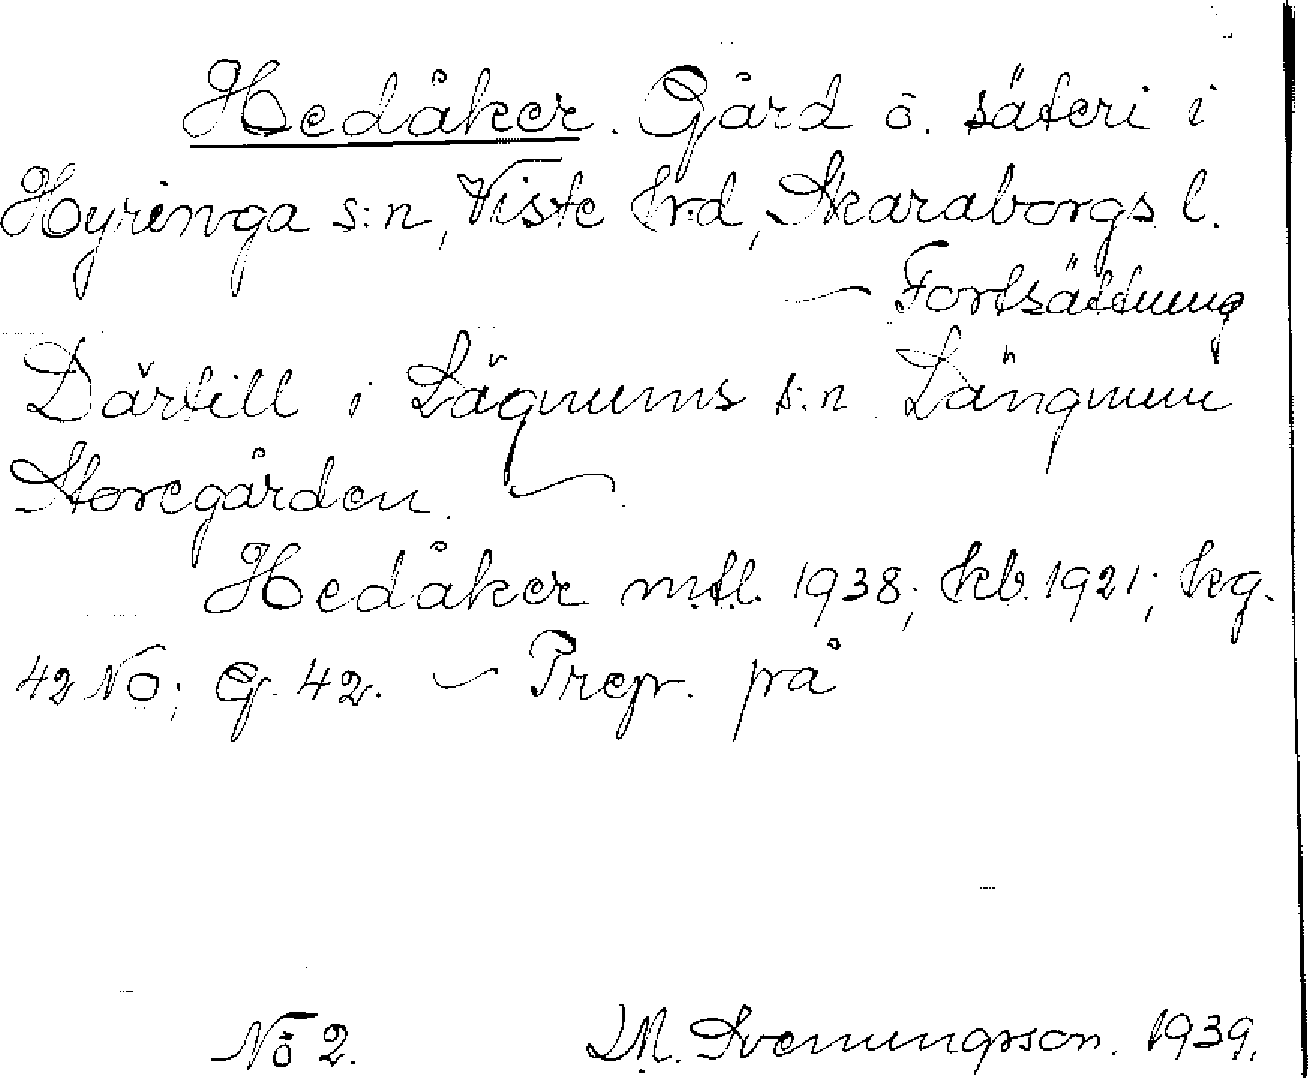 Hedåker. Gård o. säteri i
Hyringa s:n, Viste hrd, Skaraborgs l.
— Fortsättning
Därtill i Längnums s:n Längnum
Storegården. —
Hedåker mtl. 1938; kb. 1921; kg.
42 NO; G. 42. — Prep. på
No 2. M. Svenungsson. 1939.